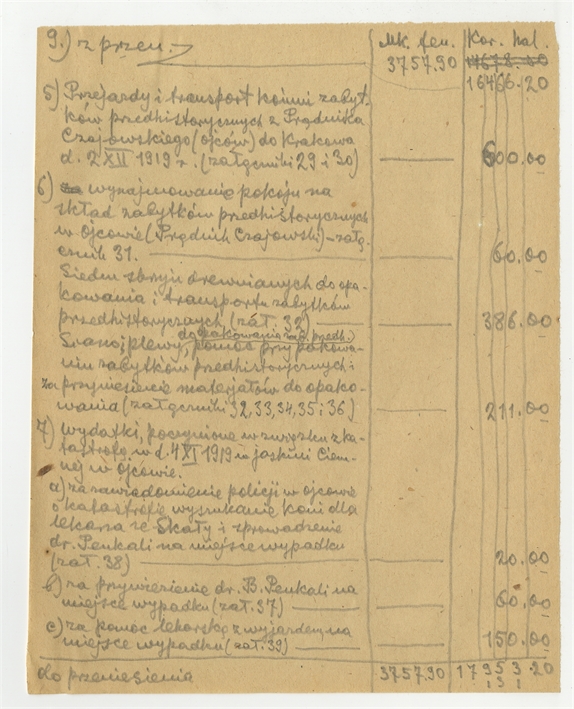 9.) z przen. Mk. fen. Kor. hal.
3757.90
16466.20
5) Przejazdy i transport końmi zabyt-
ków przedhistorycznych z Prądnika
Czajowskiego (Ojców) do Krakowa
d. 2 XII 1919 r. (załączniki 29 i 30) 600.00
6) wynajmowanie pokoju na
skład zabytków przedhistorycznych
w Ojcowie (Prądnik Czajowski) – załą-
cznik 31. 60.00
Siedm skrzyń drewnianych do opa-
kowania i transportu zabytków
przedhistorycznych (zał. 32) 386.00
do opakowania zab. przedh.)
Siano, plewy, pomoc przy pakowa-
niu zabytków przedhistorycznych i
za przyniesienie materjałów do opako-
wania (załączniki 32, 33, 34, 35 i 36) 211.00
7) wydatki, poczynione w związku z ka-
tastrofą w d. 4 XI 1919 w jaskini Ciem-
nej w Ojcowie.
a) za zawiadomienie policji w Ojcowie
o katastrofie wyszukanie koni dla
lekarza ze Skały i sprowadzenie
dr. Penkali na miejsce wypadku
(zał. 38) 20.00
b) za przywiezienie dr. B. Penkali na
miejsce wypadku (zał. 37) 60.00
c) za pomoc lekarską z wyjazdem na
miejsce wypadku (zał. 39) 150.00
do przeniesienia 3757.90 17953.20